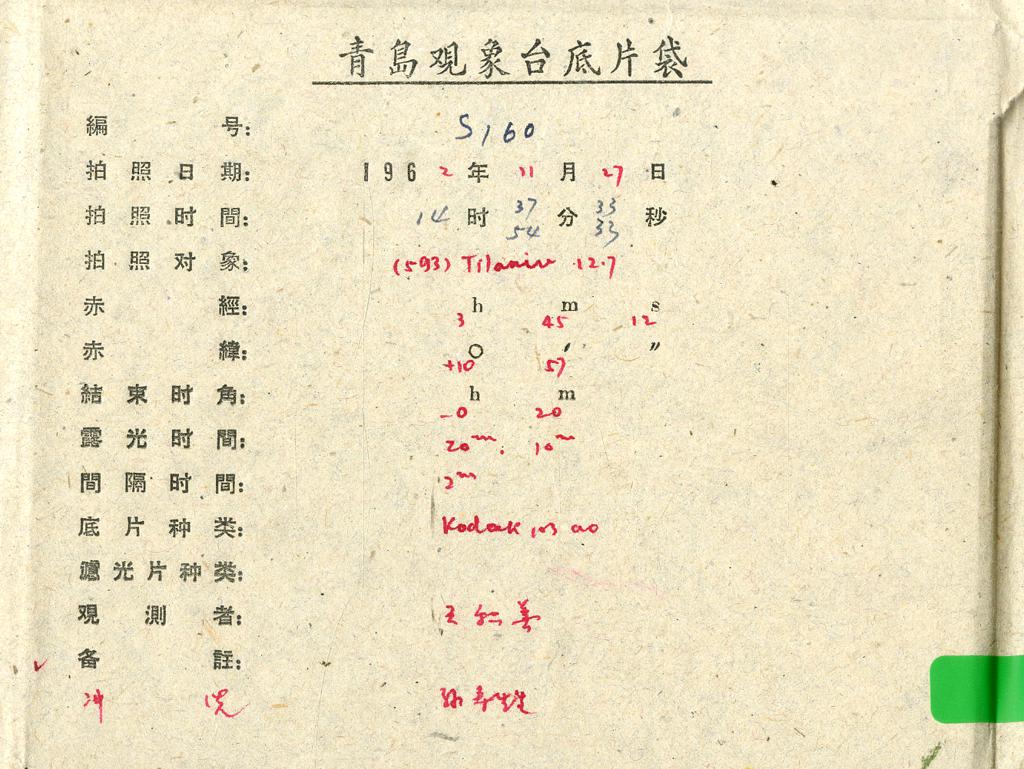 青島观象台底片袋
編号: S160
拍照日期: 1962年11月27日
拍照时間: 14时37分33秒
54 33
拍照对象: (593) Titania 12.7
赤經: 3h 45m 12s
赤緯: +10° 57′ ″
結束时角: -0h 20m
露光时間: 20m, 10m
間隔时間: 2m
底片种类: Kodak 103 aO
濾光片种类:
观測者: 王仁善
备註:
冲洗